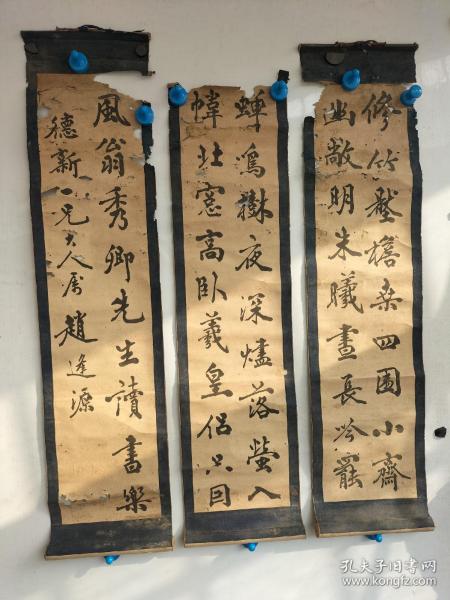 修竹壓檐桒四圍小齋
幽敞明朱曦晝長吟罷
蟬鳴樹夜深燼落螢入
幃北窓高卧羲皇侶只因
風翁秀卿先生讀書樂
德新一兄大人属 趙逢源
孔夫子旧书网
www.kongfz.com